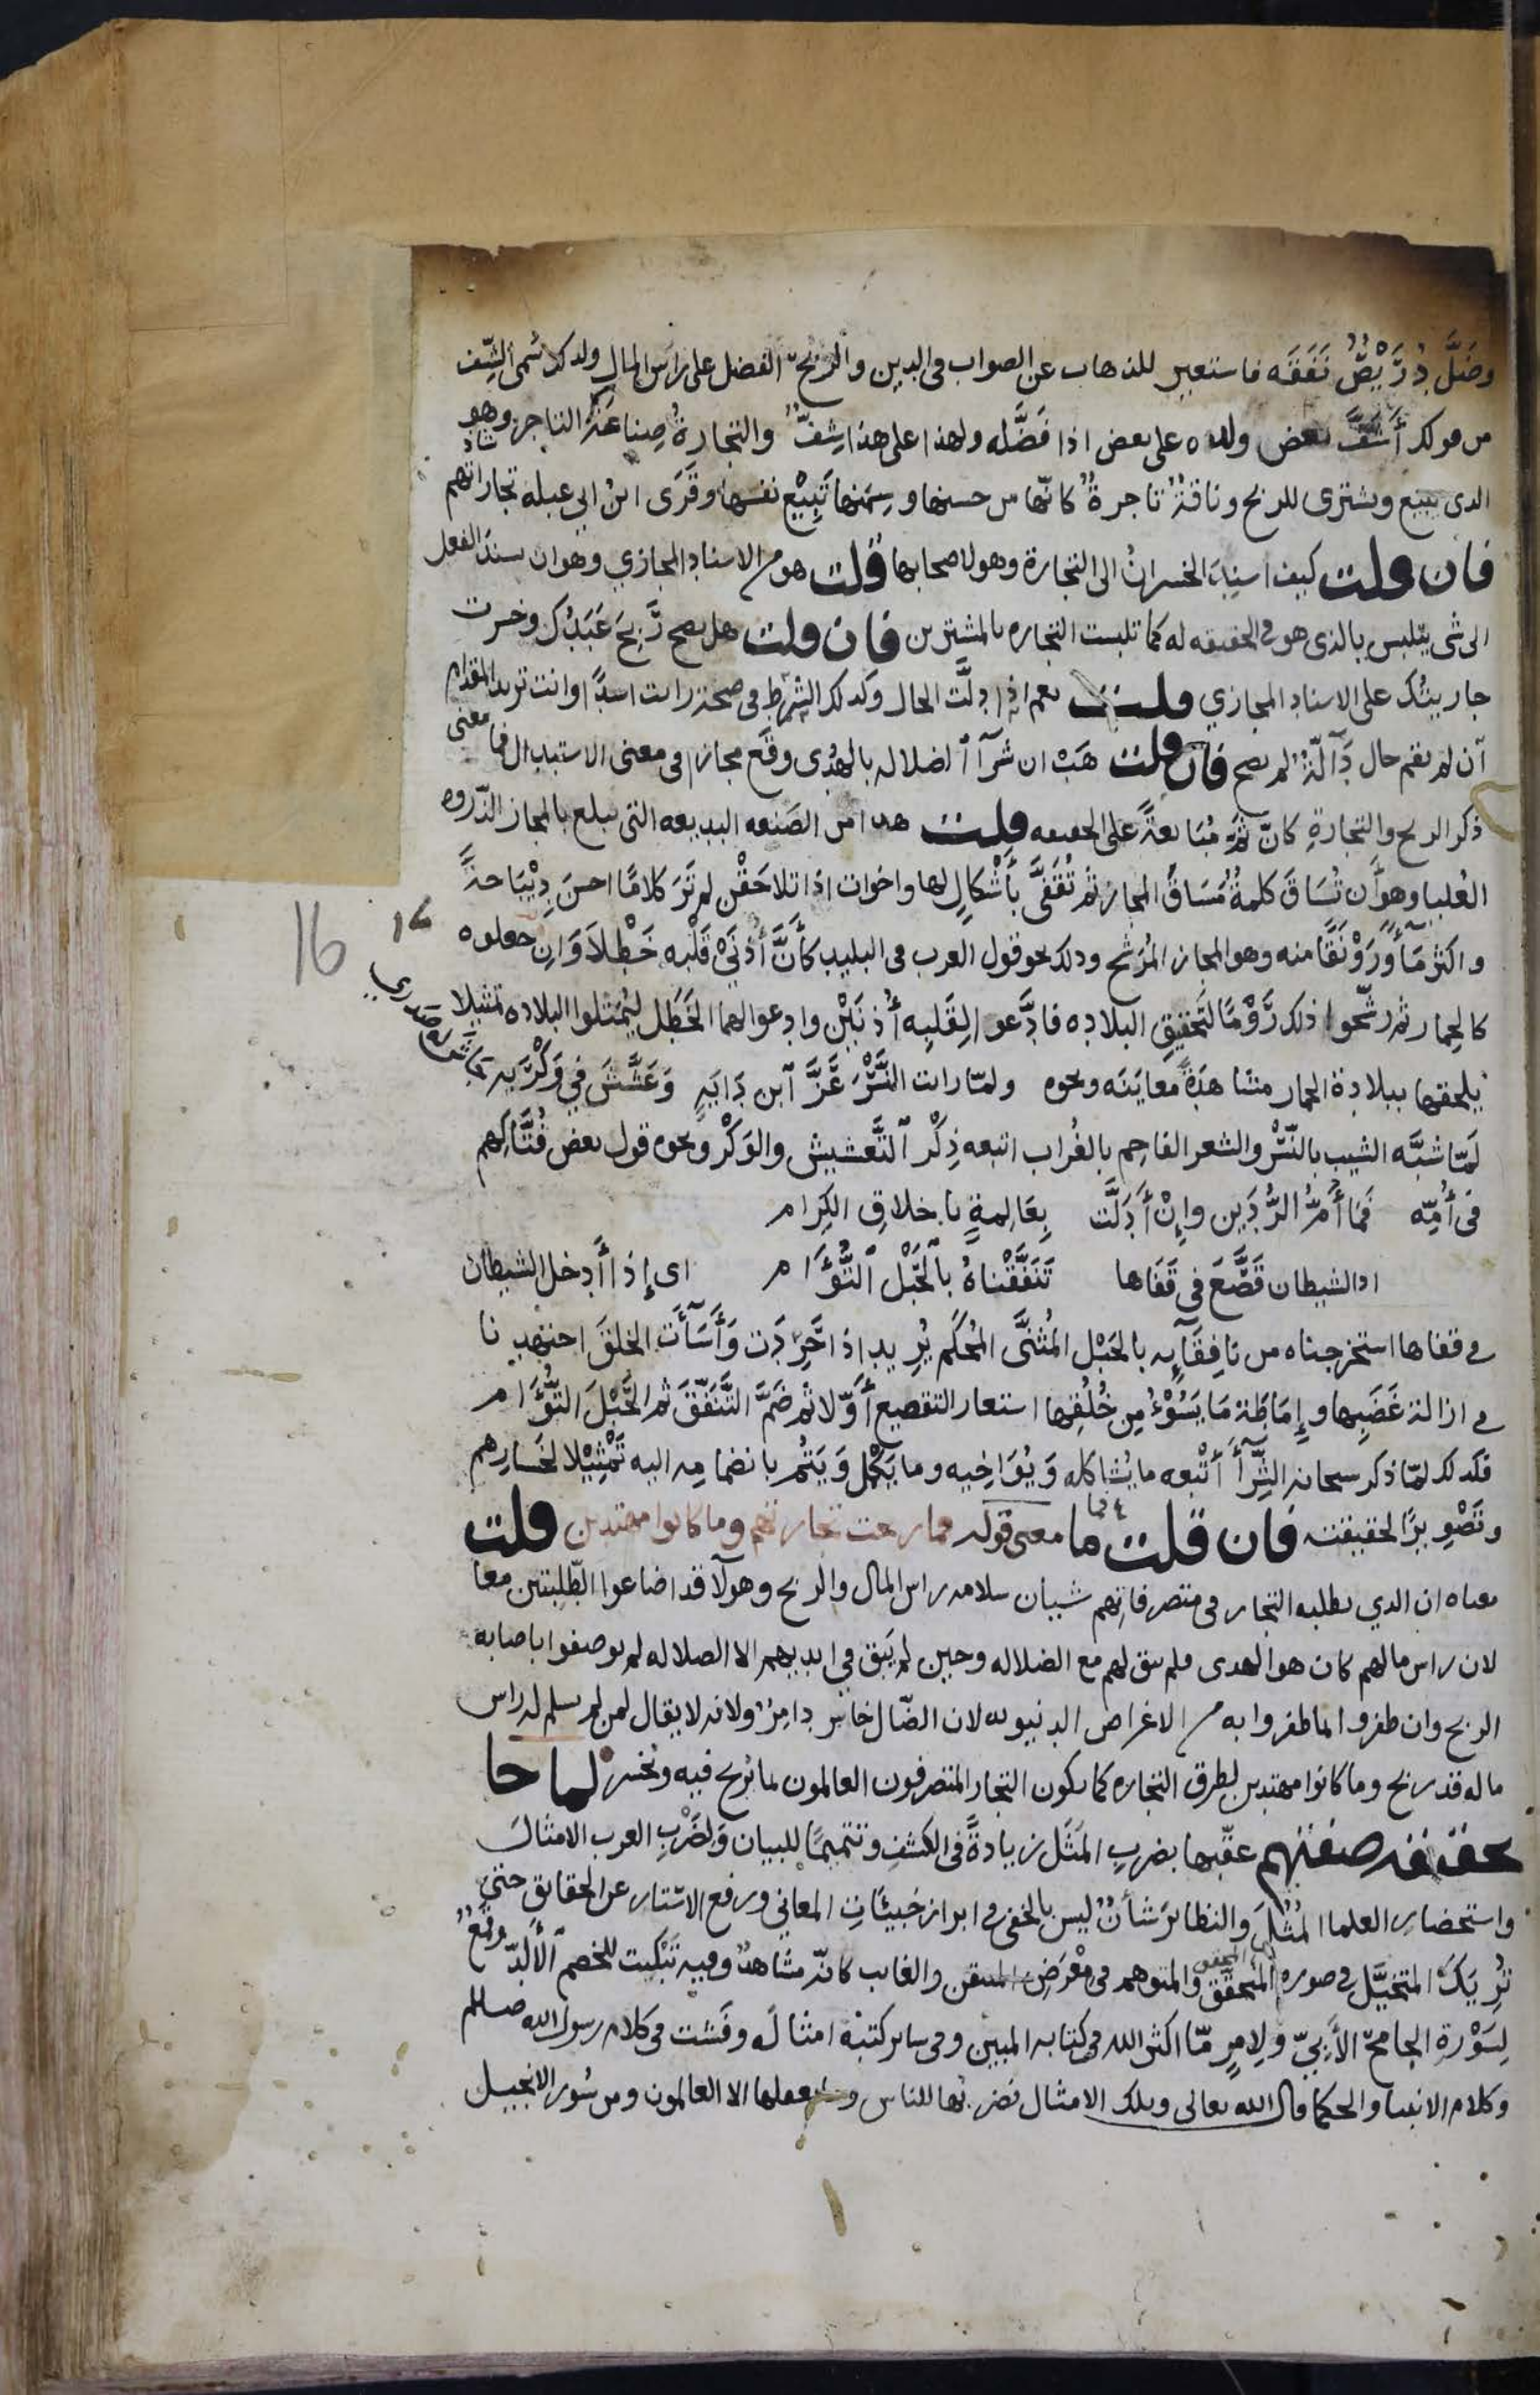 وضَلَّ دُرَيْصٌ نَفَقَه فاستعير للذهاب عن الصواب في الدين والرِّبْحُ الفضل على رأس المال ولذلك سُمي الشِّف
من قولك أَشَفَّ بعض ولده على بعض اذا فَضَّله ولهذا على هذا شِفٌّ والتجارةُ صِناعةُ التاجر وهو
الذي يبيع ويشتري للربح وناقةٌ تاجرةٌ كانّها من حسنها وسِمَنها تَبِيْع نفسها وقَرَى ابنُ ابي عبله تجاراتهم
فان قلت كيف اسنِدَ الخسرانُ الى التجارة وهو لاصحابها قلت هو من الاسناد المجازي وهو ان يسند الفعل
الى شي يتلبس بالذي هو في الحقيقه له كما تلبست التجاره بالمشترين فان قلت هل يصح رَبِحَ عَبْدُك وخسرت
جاريتُك على الاسناد المجازي قلت نعم اذا دلَّت الحال وكذلك الشرط في صحة رايت اسدًا وانت تريد المقدام
ان لم يقم حال دَالّةٌ لم يصح فان قلت هَبْ ان شرآ الضلاله بالهُدى وقَع مجازا في معنى الاستبدال فما معنى
ذكر الربح والتجارةِ كانّ ثمّ مُبَايعةً على الحقيقه قلت هذا من الصَنعه البديعه التي تبلغ بالمجاز الذّروه
العُليا وهو أَن تُسَاقَ كلمةٌ مَسَاقَ المجاز ثم تُقَفَّى بأَشْكالٍ لها واخوات اذا تلاحَقْن لم تَرَ كلامًا احسنَ دِيْبَاجةً
واكثر مَآءً ورَوْنَقًا منه وهو المجاز المُرَشَّح وذلك نحو قول العرب في البليد كأَنَّ أُذنَيْ قَلْبِه خَطْلاَوَانِ جعلوه
كالحِمار ثم رشّحوا ذلك رَوْمًا لتَحقيق البلاده فادَّعوا لِقَلبِه أُذنَيْن وادعوا لهما الخَطَل ليُمَثلوا البلاده تمثيلا
يلحقها ببلادة الحمار مشاهدةً معاينَه ونحوه ولمّا رايت النَّسْرَ عَزَّ ابن دَايَةٍ وَعَشَّشَ في وَكْرَيْهِ جاش له صدري
لمّا شبَّه الشيب بالنَّسْر والشعر الفاحم بالغُراب اتبعه ذِكْر التَّعشيش والوَكْر ونحوه قول بعض فُتَّاكِهم
في أُمِّه فَمَا أُمُّ الرُّدَيْن وإِنْ أَدَلَّت بِعَالِمةٍ باخلاقِ الكِرام
اذا الشيطان قَصَّعَ في قَفَاها تَنَفَّقْناهُ بالحَبْل التُّؤَام اى إِذا أَدخل الشيطان
في قفاها استخرجناه من نافِقَآيه بالحَبْل المُثنَّى المُحكَم يُرِيد اذا حَرِدَت وَأَسَآَت الخلقَ اجتهدنا
في ازالة غَضَبِها وإِمَاطَة مَا يَسُوْءُ مِن خُلُقِها استعار التقصيع أوّلا ثم ضمَّ التَّنَفّقَ ثم الحَبْلَ التُّؤَام
فكذلك لمّا ذكر سبحانه الشِّرآَ أَتْبعه ما يُشاكله وَيُوَاخِيه وما يَكْمُل وَيَتُم بانضمامه اليه تَمْثِيْلا لخَسَارِهم
وتَصْوِيرًا لحقيقته فان قلت فما ما معنى قوله فما ربحت تجارتهم وما كانوا مهتدين قلت
معناه ان الذي يطلبه التجار في متصرفاتهم شيئان سلامه راس المال والربح وهولآ قد اضاعوا الطَّلِبتين معا
لان راس مالهم كان هو الهدى فلم يبق لهم مع الضلاله وحين لم يَبق في ايديهم الا الضلاله لم يوصفوا باصابه
الربح وان ظفروا بما ظفروا به من الاغراض الدنيويه لان الضّال خاسر دامِرٌ ولانه لا يقال لمن لم يسلم له راس
ماله قد ربح وما كانوا مهتدين لطرق التجاره كما يكون التجار المتصرفون العالمون بما يُربح فيه ويُخسر لما جا
بحقيقة صفتهم عقّبها بضربِ المَثَل زيادةً في الكشفِ وتتميمًا للبيان ولِضَرْبِ العرب الامثالَ
واستحضار العلما المُثُلَ والنظائرَ شأنٌ ليس بالخفي في ابراز خبيئَاتِ المعاني ورفع الاستار عن الحقايق حتى
تُرِيَكَ المتخيَّل في صوره المتحقّق المحقق والمتوهم في مَعْرَضِ المتيقن والغايب كانّه مشاهدٌ وفيه تَبْكيت للخصم الأَلدّ وقَمْعٌ
لِسَوْرةِ الجامح الأَبيّ ولامرٍ مّا اكثر الله في كتابه المبين وفي ساير كتبه امثالَه وفَشت في كلام رسول الله صلعلم
وكلام الانبيا والحكما قال الله تعالى وتلك الامثال نضربها للناس وما يعقلها الا العالمون ومن سُور الانجيل
16